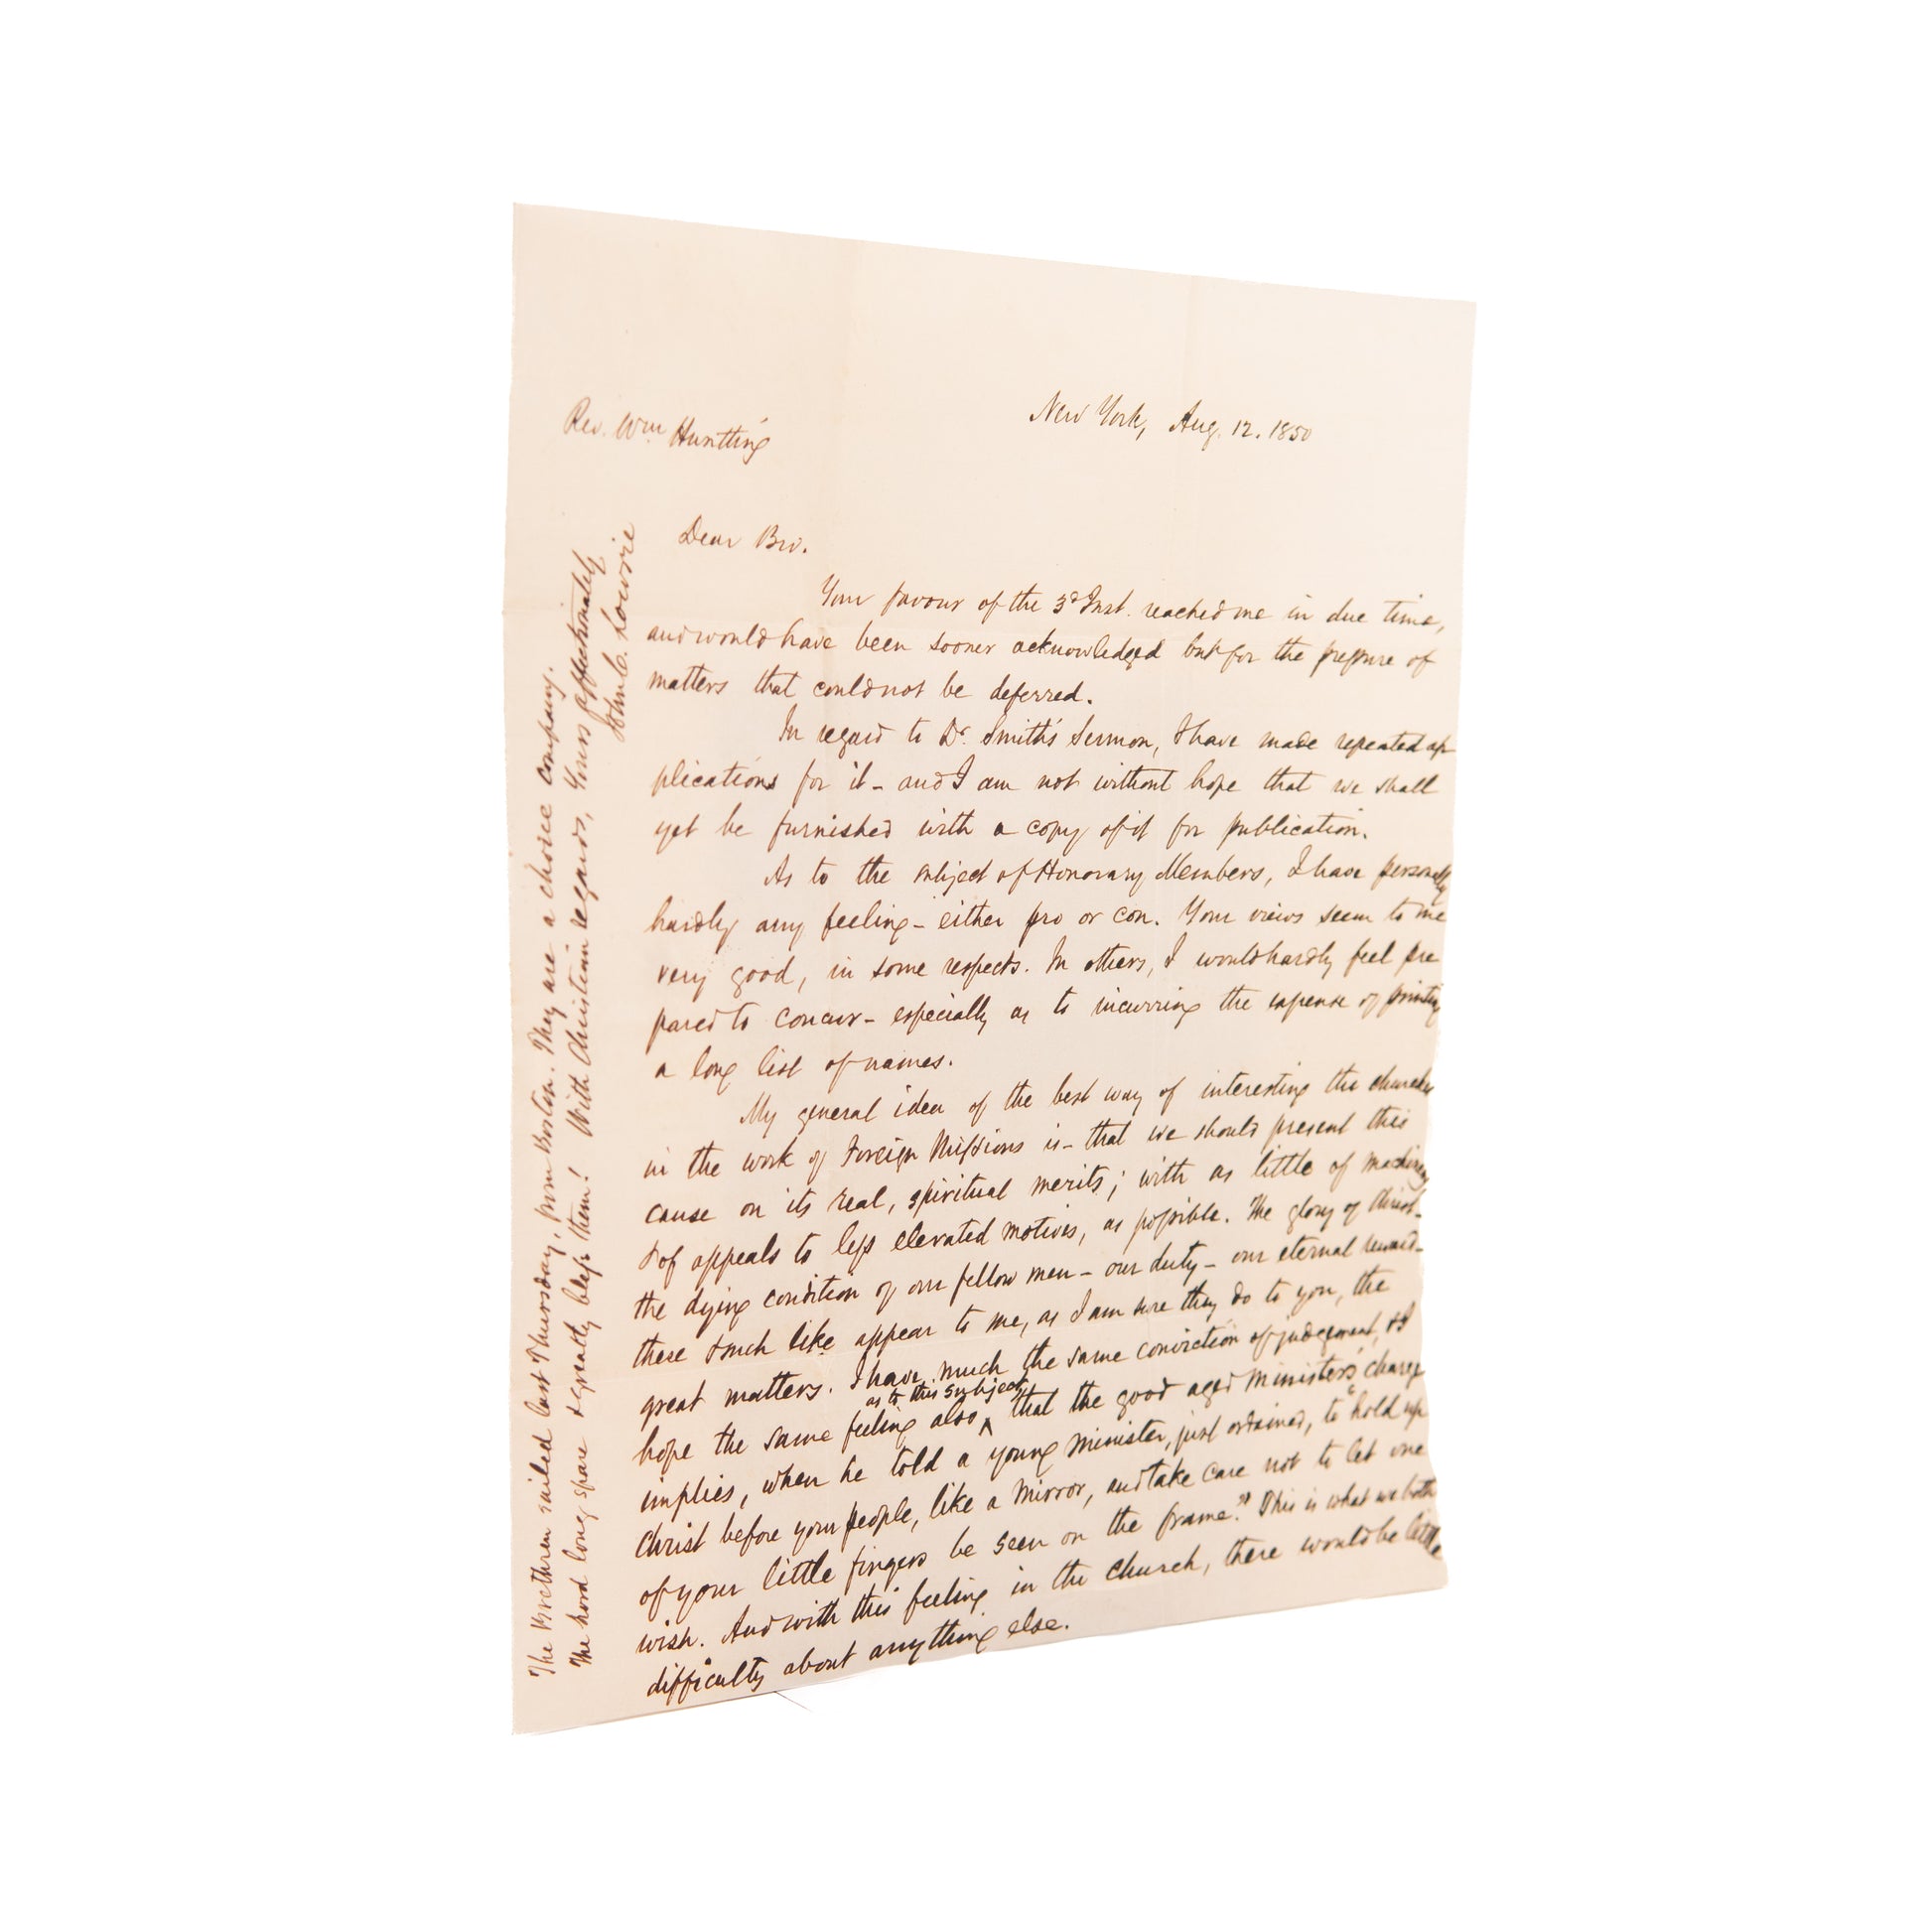 New York, Aug. 12. 1850
Rev. Wm Hunting
Dear Bro.
Your favour of the 3d Inst. reached me in due time,
and would have been sooner acknowledged but for the pressure of
matters that could not be deferred.
In regard to Dr. Smith's Sermon, I have made repeated ap
plications for it - and I am not without hope that we shall
yet be furnished with a copy of it for publication.
As to the subject of Honorary Members, I have personally
hardly any feeling - either pro or con. Your views seem to me
very good, in some respects. In others, I would hardly feel pre
pared to concur - especially as to incurring the expense of printing
a long list of names.
My general idea of the best way of interesting the churches
in the work of Foreign Missions is - that we should present this
cause on its real, spiritual merits; with as little of machinery
& of appeals to less elevated motives, as possible. The glory of Christ -
the dying condition of our fellow men - our duty - our eternal reward -
these & such like appear to me, as I am sure they do to you, the
great matters. I have much the same conviction of judgement, & I
as to this subject,
hope the same feeling also ^ that the good aged minister's charge
implies, when he told a young minister, just ordained, to "hold up
Christ before your people, like a mirror, and take care not to let one
of your little fingers be seen on the frame." This is what we both
wish. And with this feeling in the church, there would be little
difficulty about anything else.
The Brethren sailed last Thursday, from Boston. They are a choice company.
The Lord long spare & greatly bless them! With Christian regards, Yours affectionately
John C. Lowrie